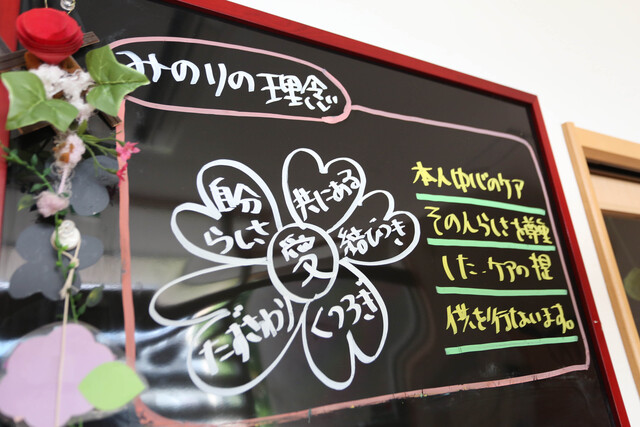 みのりの理念
自分
らしさ
共にある
愛
結びつき
たずさわり
くつろぎ
本人中心のケア
その人らしさを尊重
した、ケアの提
供を行ないます。